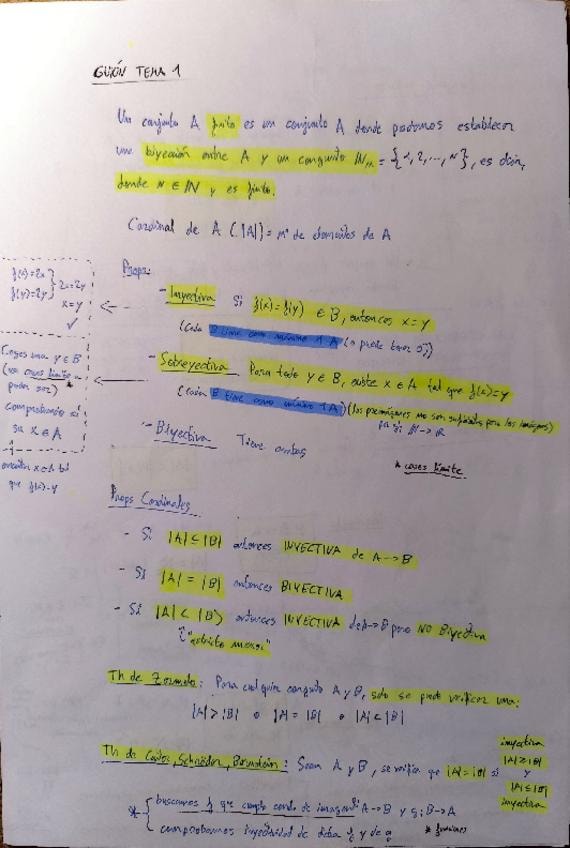 GUIÓN TEMA 1
Un conjunto A finito es un conjunto A donde podemos establecer
una biyección entre A y un conjunto IN = {1, 2, ..., N}, es decir,
donde N ∈ IN y es finito.
Cardinal de A (|A|) = nº de elementos de A
Props:
- Inyectiva Si f(x) = f(y) ∈ B, entonces x = y
(Cada B tiene como máximo 1 A (o puede tener 0))
- Sobreyectiva Para todo y ∈ B, existe x ∈ A tal que f(x) = y
(Cada B tiene como mínimo 1 A) (las preimágenes no son para las imágenes)
IN -> IR
- Biyectiva Tiene ambas
* casos límite
f(x) = 2x
f(y) = 2y
2x = 2y
x = y
✓
Coges una y ∈ B
(va casos límite a
poder ser)
comprobando si
su x ∈ A
x ∈ A tal
que f(x) = y
Props Cardinales
- Si |A| ≤ |B| entonces INYECTIVA de A -> B
- Si |A| = |B| entonces BIYECTIVA
- Si |A| < |B| entonces INYECTIVA de A -> B pero NO Biyectiva
"estricto menor"
Th de Zermelo: Para cualquier conjunto A y B, solo se puede verificar una:
|A| > |B| o |A| = |B| o |A| < |B|
Th de Cantor, Schröder, Bernstein: Sean A y B, se verifica que |A| = |B| si
inyectiva
|A| ≥ |B|
y
|A| ≤ |B|
inyectiva
* { buscamos f que cumpla cond de imagen f: A -> B y g: B -> A
comprobamos inyectividad de dicha f y de g
* funciones